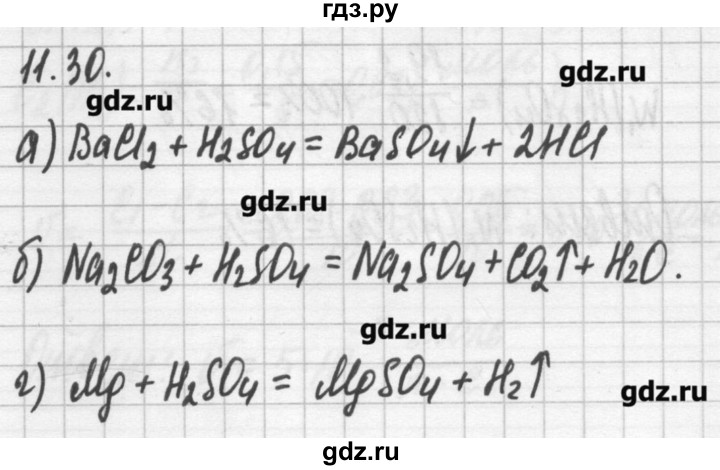 гдз.ру
11.30.
gdz.ru
gdz.ru
а) BaCl2 + H2SO4 = BaSO4↓ + 2HCl
gdz.ru
б) Na2CO3 + H2SO4 = Na2SO4 + CO2↑ + H2O.
gdz.ru
г) Mg + H2SO4 = MgSO4 + H2↑
gdz.ru
gdz.ru